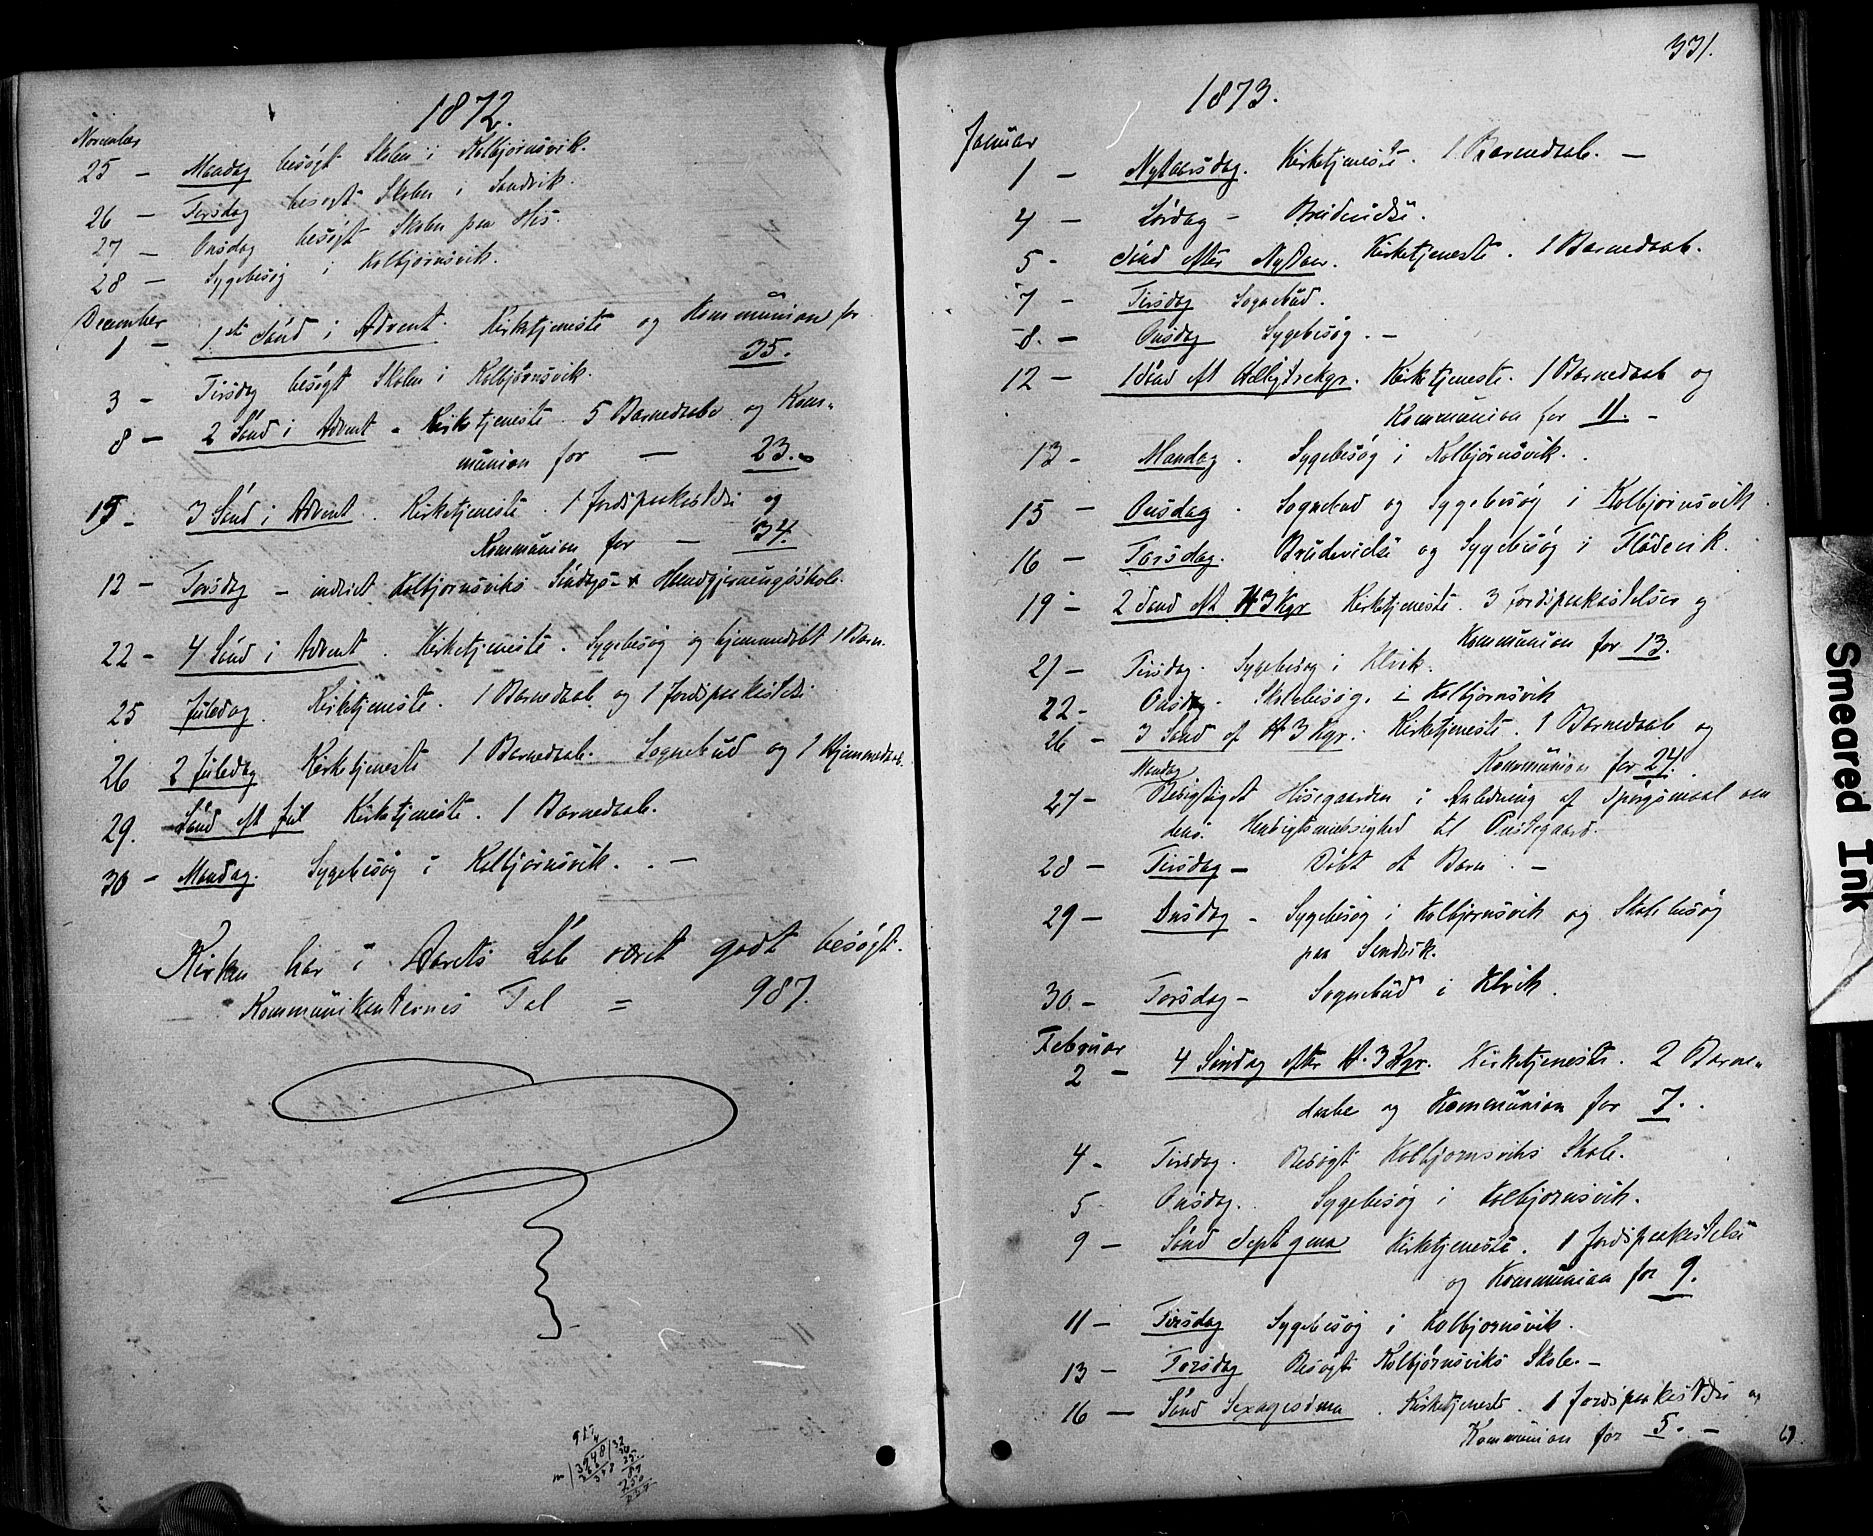 1872.
November
25 — Mandag besøgt Skolen i Kolbjørnsvik.
26 — Tirsdag besøgt Skolen i Sandvik.
27 — Onsdag besøgt Skolen paa His.
28 — Sygebesøg i Kolbjørnsvik.
December
1 — 1ste Sönd i Advent. Kirketjeneste og Kommunion for
35.
3 — Tirsdag besøgt Skolen i Kolbjørnsvik.
8 — 2 Sönd i Advent. Kirketjeneste. 5 Barnedaabe og Kom-
munion for — 23.
15 — 3 Sönd i Advent. Kirketjeneste. 1 Jordspaakastelse og
Kommunion for — 34.
12 — Torsdag — indviet Kolbjørnsviks Söndags- & Haandgjerningsskole.
22 — 4 Sönd i Advent. Kirketjeneste. Sygebesøg og hjemmedøbt 1 Barn.
25 Juledag. Kirketjeneste. 1 Barnedaab og 1 Jordspaakastelse.
26 2 Juledag Kirketjeneste 1 Barnedaab. Sognebud og 1 Hjemmedaab.
29. Sönd eft Jul Kirketjeneste. 1 Barnedaab.
30 — Mandag. Sygebesøg i Kolbjørnsvik. —
Kirken har i Aarets Löb været godt besøgt.
Kommunikanternes Tal = 987.
331.
1873.
Januar
1 — Nytaarsdag. Kirketjeneste. 1 Barnedaab. —
4 — Lördag — Brudevielse.
5 — Sönd efter Nytaar. Kirketjeneste. 1 Barnedaab.
7 — Tirsdag Sognebud.
8. — Onsdag Sygebesøg. —
12 — 1 Sönd eft Helligtrekgr. Kirketjeneste. 1 Barnedaab og
Kommunion for 11. —
13 — Mandag. Sygebesøg i Kolbjørnsvik.
15 — Onsdag. Sognebud og Sygebesøg i Kolbjørnsvik.
16 — Torsdag. Brudevielse og Sygebesøg i Flödevik.
19 — 2 Sönd eft H 3 Kgr Kirketjeneste. 3 Jordspaakastelser og
Kommunion for 13.
21 — Tirsdag. Sygebesøg i Klvik.
22 — Onsdag. Skolebesøg. i Kolbjørnsvik
26 — 3 Sönd ef H 3 Kgr. Kirketjeneste. 1 Barnedaab og
Kommunion for 24.
Mandag
27 — Besigtiget Hisegaarden i Anledning af Spørgsmaal om
dens Hensigtsmæssighed til Enkegaard.
28 — Tirsdag — Döbt et Barn. —
29 — Onsdag — Sygebesøg i Kolbjørnsvik og Skolebesøg
paa Sandvik.
30. — Torsdag — Sognebud i Klvik.
Februar
2 — 4 Söndag efter H. 3 Kgr. Kirketjeneste. 2 Barne-
daabe og Kommunion for 7.
4 — Tirsdag. Besøgt Kolbjornsviks Skole.
5 Onsdag. Sygebesøg i Kolbjørnsvik.
9 — Sönd Septagma Kirketjeneste. 1 Jordspaakastelse
og Kommunion for 9.
11 — Tirsdag Sygebesøg i Kolbjørnsvik.
13 — Torsdag Besøgt Kolbjørnsviks Skole. —
16 — Sönd Sexagesima. Kirketjeneste. 1 Jordspaakastelse og
Kommunion for 5. —
Smeared Ink